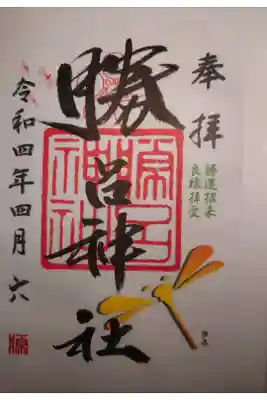 奉拝
勝運招来
良縁拝受
勝呂神社
令和四年四月六